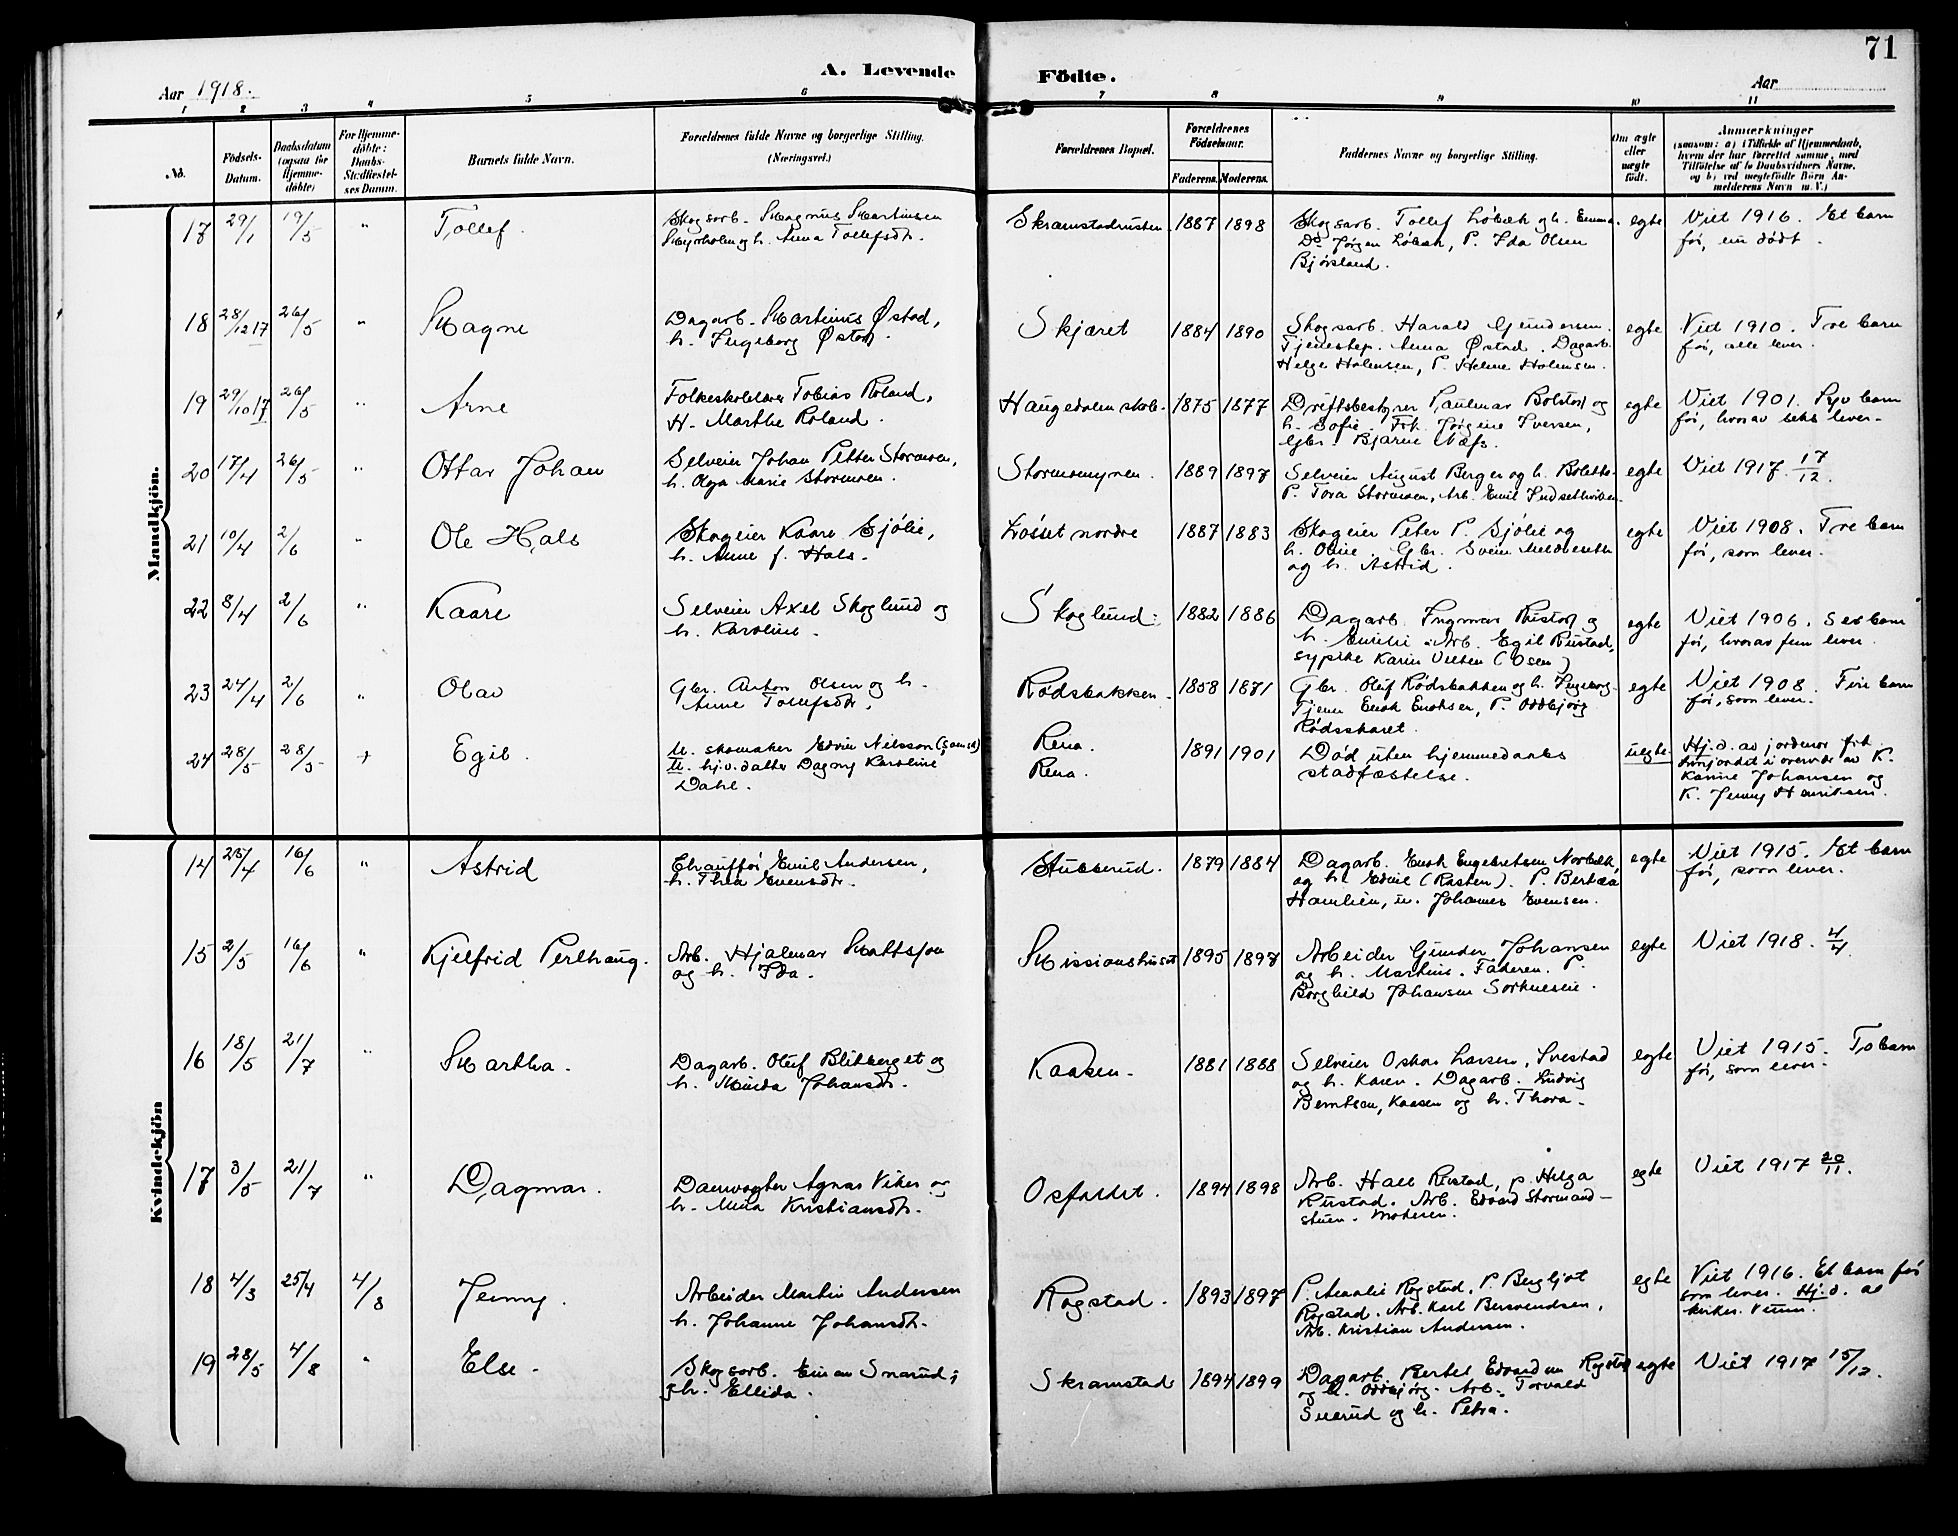 71
A. Levende Födte.
Aar 1918. Aar
1 2 3 4 5 6 7 8 9 10 11
No. Födsels-Datum. Daabsdatum (ogsaa for Hjemme-døbte) For Hjemme-døbte: Daabs-Stadfæstel-ses Datum. Barnets fulde Navn. Forældrenes fulde Navne og borgerlige Stilling. (Næringsvei.) Forældrenes Bopæl. Forældrenes Födselsaar. Faderens. Moderens. Faddernes Navne og borgerlige Stilling. Om ægte eller uægte født. Anmærkninger (saasom: a) i Tilfælde af Hjemmedaab, hvem der har forrettet samme, med Tilføielse af to Daabsvidners Navne, og b) ved uægtefödte Börn Anmelderens Navn m. V.)
Mandkjön.
17 29/1 19/5 " Tollef. Skogsarb. Magnus Martinsen
Myrholen og h. Anna Tollefsdtr. Skramstadrusten 1887 1898 Skogsarb. Tollef Løbæk og h. Emma.
Do Jørgen Løbæk, P. Ida Olsen
Bjørsland. egte Viet 1916. Et barn
før, nu dødt.
18 28/12 17 26/5 " Magne Dagarb. Martinus Østad,
h. Ingeborg Østad. Skjæret 1884 1890 Skogsarb. Harald Gundersen.
Tjenestep. Anna Østad. Dagarb.
Helge Holmsen, P. Helene Holmsen. egte Viet 1910. Tre barn
før, alle lever.
19 29/10 17 26/5 " Arne Folkeskolelærer Tobias Roland,
H. Marthe Roland. Haugedalen skole. 1875 1877 Driftsbestyrer Paulmar Bolstad og
h. Sofie. Frk. Jørgine Iversen,
Gbr. Bjarne Næfs. egte Viet 1901. Syv barn
før, hvorav seks lever.
20 17/4 26/5 " Ottar Johan Selveier Johan Petter Stormoen,
h. Olga Marie Stormoen. Stormomyren. 1889 1897 Selveier August Berger og h. Bolette.
P. Tora Stormoen, Arb. Emil Indsethviken. egte Viet 1917 17/12.
21 10/4 2/6 " Ole Hals Skogeier Kaare Sjölie,
h. Anne f. Hals. Løsset nordre 1887 1883 Skogeier Peter P. Sjölie og
h. Oline. Gbr. Svein Meldeseth
og h. Astrid. egte Viet 1908. Tre barn
før, som lever.
22 8/4 2/6 " Kaare Selveier Axel Skoglund og
h. Karoline. Skoglund. 1882 1886 Dagarb. Ingmar Rustad og
h. Emilie. Arb. Egil Rustad,
sypike Karin Velten (Osen) egte Viet 1906. Seks barn
før, hvorav fem lever.
23 24/4 2/6 " Olav Gbr. Anton Olsen og h.
Anne Tollefsdtr. Rødsbakken. 1858 1871 Gbr. Oluf Rødsbakken og h. Ingeborg.
Tjener Enok Enoksen, P. Oddbjørg
Rødsskaret. egte Viet 1908. Fire barn
før, som lever.
24 28/5 28/5 + Egil. U. skomaker Edvin Nilsson (svensk)
U. hj.v. datter Dagny Karoline
Dahl. Rena.
Rena. 1891 1901 Død uten hjemmedaabs
stadfæstelse. uegte. Hj.d. av jordmor frk.
i overvær av K.
Karine Johansen og
K. Jenny Henriksen.
Kvindekjön
14 25/4 16/6 " Astrid Chauffør Emil Andersen,
h. Thea Evensdtr. Stubberud. 1879 1884 Dagarb. Enok Engebretsen Norbæk
og h. Edine (Rasten). P. Bertea
Hamlien, u. Johannes Evensen. egte Viet 1915. Et barn
før, som lever.
15 2/5 16/6 " Kjelfrid Perlhaug. Arb. Hjalmar Mattsson
og h. Ida. Missionshuset 1895 1897 Arbeider Gunder Johansen
og h. Martine. Faderen. P.
Borghild Johansen Sorkneseie. egte Viet 1918. 4/4.
16 18/5 21/7 " Martha. Dagarb. Oluf Blikberget og
h. Minda Johansdtr. Kaasen. 1881 1888 Selveier Oskar Larsen, Ivestad
og h. Karen. Dagarb. Ludvig
Berntsen, Kaasen og h. Thora. egte Viet 1915. To barn
før, som lever.
17 3/5 21/7 " Dagmar. Damvogter Agnar Viken og
h. Mina Kristiansdtr. Osfaldet. 1894 1898 Arb. Hall Rustad, p. Helga
Rustad. Arb. Edvard Stormand-
stuen. Moderen. egte Viet 1917 20/11.
18 4/3 25/4 4/8 Jenny. Arbeider Martin Andersen
h. Johanne Johansdtr. Rogstad. 1893 1897 P. Amalie Rogstad, P. Bergljot
Rogstad. Arb. Karl Bersvendsen,
Arb. Kristian Andersen. egte Viet 1916. Et barn før
som lever. Hj.d. av
kirkes.
19 28/5 4/8 " Else. Skogsarb. Einar Snarud,
g h. Ellida. Skramstad 1894 1899 Dagarb. Bertel Edvardsen Rogstad
og h. Oddbjørg. Arb. Torvald
Snerud og h. Petra. egte Viet 1917 15/12.